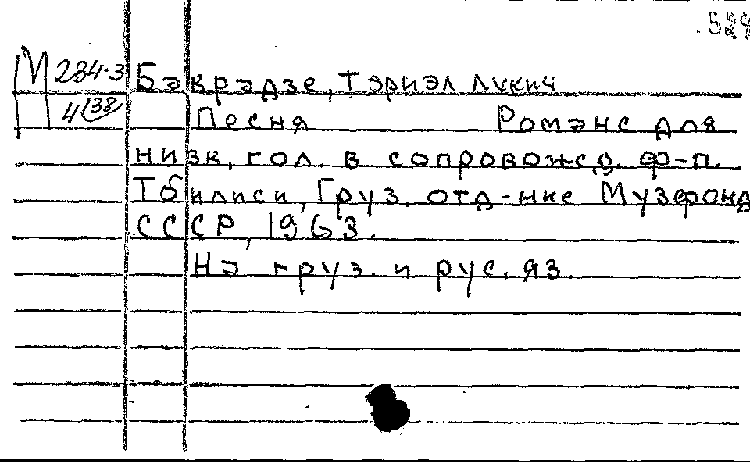 М 284-3
4 (38)
Бакрадзе, Тариэл Лукич
Песня Романс для
низк. гол. в сопровожд. ф-п.
Тбилиси, Груз. отд-ние Музфонд
СССР, 1963.
На груз. и рус. яз.